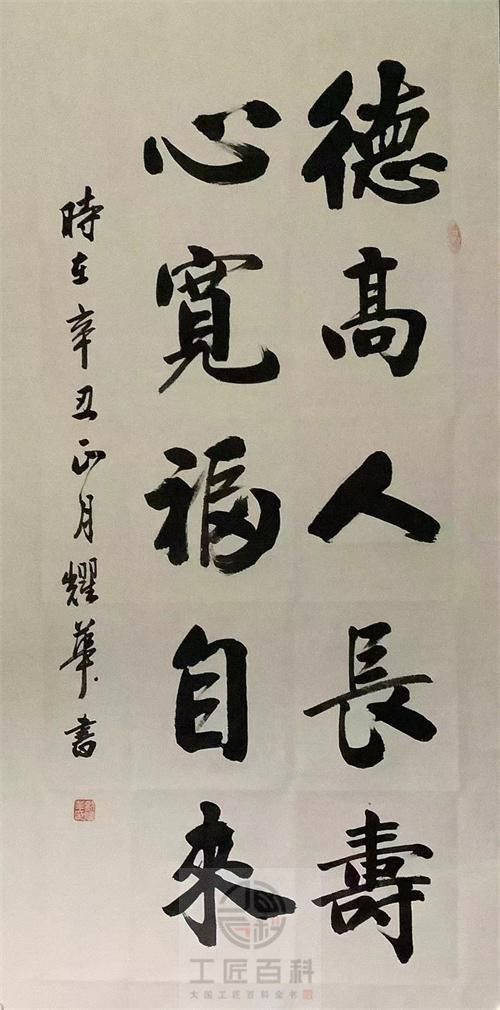 德高人長壽
心寬福自來
時在辛丑正月耀華書
工匠百科
大国工匠百科全书